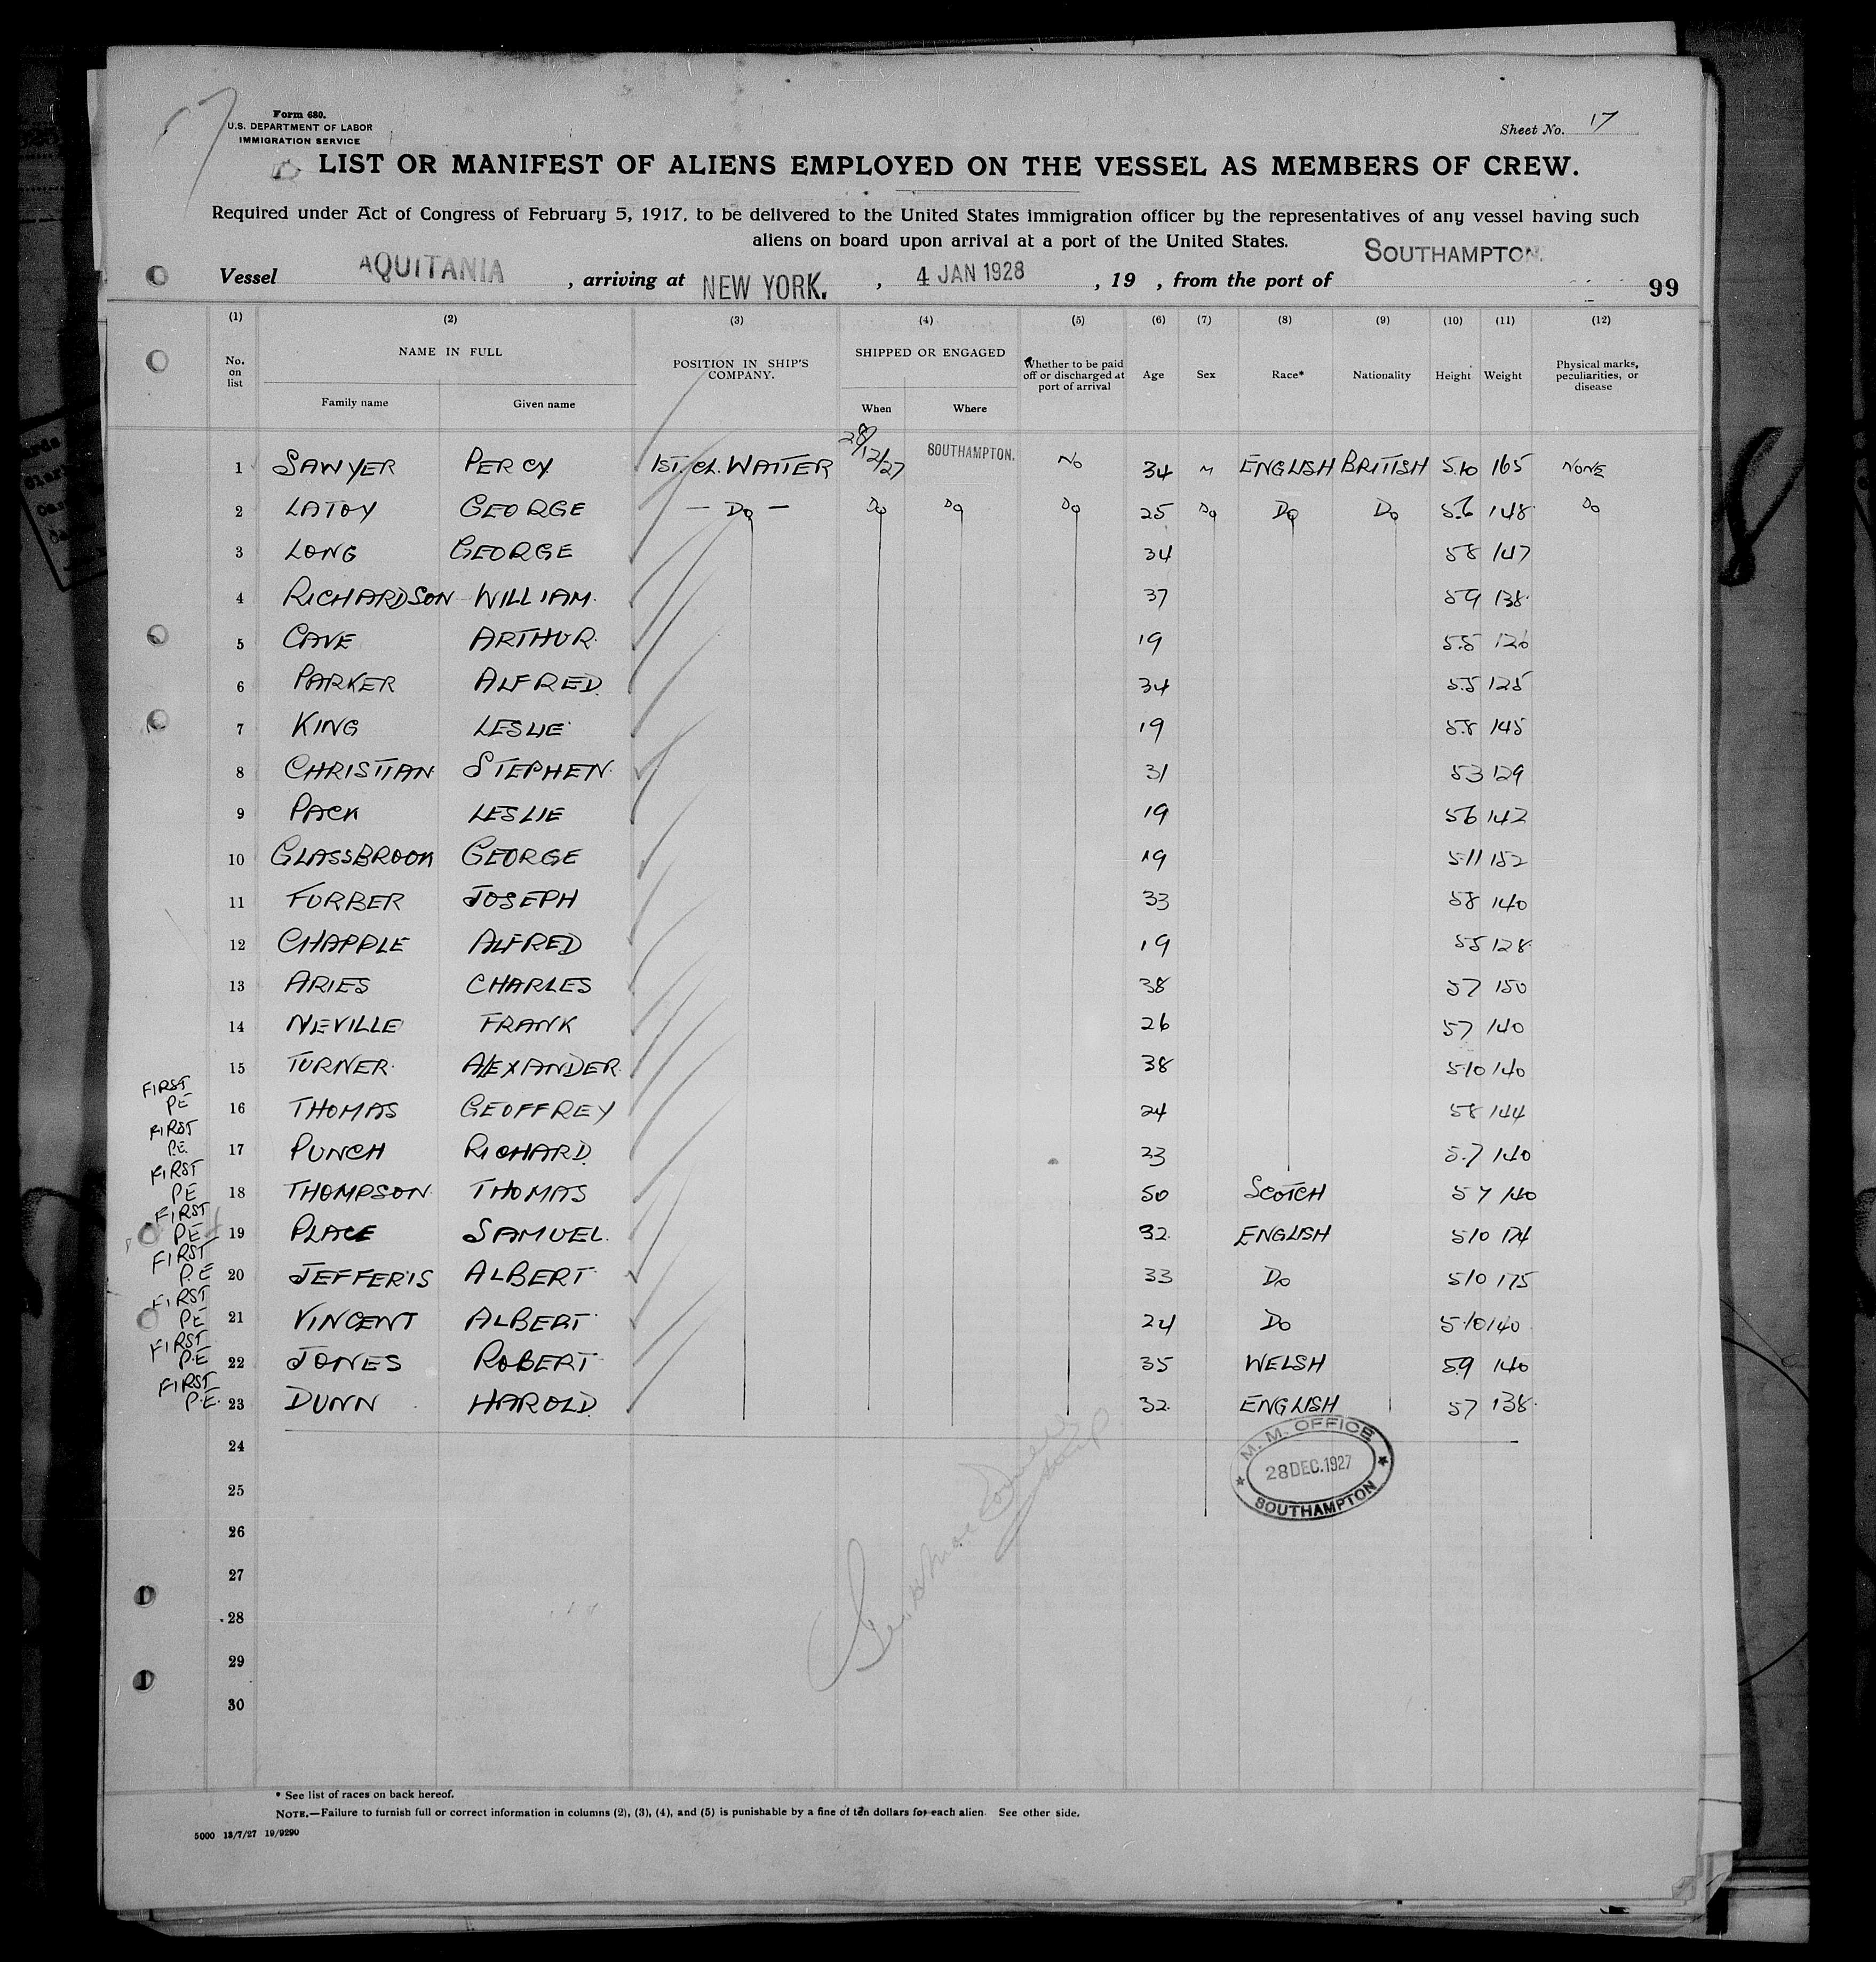 Form 680.
U.S. DEPARTMENT OF LABOR
IMMIGRATION SERVICE
Sheet No. 17
LIST OR MANIFEST OF ALIENS EMPLOYED ON THE VESSEL AS MEMBERS OF CREW.
Required under Act of Congress of February 5, 1917, to be delivered to the United States immigration officer by the representatives of any vessel having such
aliens on board upon arrival at a port of the United States.
Vessel AQUITANIA, arriving at NEW YORK., 4 JAN 1928, 19 , from the port of SOUTHAMPTON.
99
(1) (2) (3) (4) (5) (6) (7) (8) (9) (10) (11) (12)
No. on list NAME IN FULL POSITION IN SHIP'S COMPANY. SHIPPED OR ENGAGED Whether to be paid off or discharged at port of arrival Age Sex Race* Nationality Height Weight Physical marks, peculiarities, or disease
Family name Given name When Where
1 SAWYER PERCY 1ST. CL. WAITER 28/12/27 SOUTHAMPTON. No 34 M ENGLISH BRITISH 5.10 165 NONE
2 LATOY GEORGE — Do — Do Do Do 25 Do Do Do 5.6 148 Do
3 LONG GEORGE 34 58 147
4 RICHARDSON WILLIAM. 37 59 138
5 CAVE ARTHUR. 19 5.5 126
6 PARKER ALFRED. 34 5.5 125
7 KING LESLIE 19 5.8 145
8 CHRISTIAN STEPHEN. 31 53 129
9 PACK LESLIE 19 56 142
10 GLASSBROOK GEORGE 19 5.11 152
11 FURBER JOSEPH 33 58 140
12 CHAPPLE ALFRED 19 55 128
13 ARIES CHARLES 38 57 150
14 NEVILLE FRANK 26 57 140
15 TURNER. ALEXANDER. 38 510 140
FIRST PE 16 THOMAS GEOFFREY 24 58 144
FIRST P.E. 17 PUNCH RICHARD. 23 5.7 140
FIRST PE 18 THOMPSON THOMAS 50 SCOTCH 57 140
FIRST PE 19 PLACE SAMUEL. 32 ENGLISH 510 174
FIRST P.E 20 JEFFERIS ALBERT 33 Do 510 175
FIRST PE 21 VINCENT ALBERT 24 Do 5.10 140
FIRST P.E 22 JONES ROBERT 35 WELSH 59 140
FIRST P.E. 23 DUNN HAROLD. 32 ENGLISH 57 138
24
25
26
27
28
29
30
M. M. OFFICE
28 DEC. 1927
SOUTHAMPTON
* See list of races on back hereof.
NOTE.—Failure to furnish full or correct information in columns (2), (3), (4), and (5) is punishable by a fine of ten dollars for each alien. See other side.
5000 13/7/27 19/9290